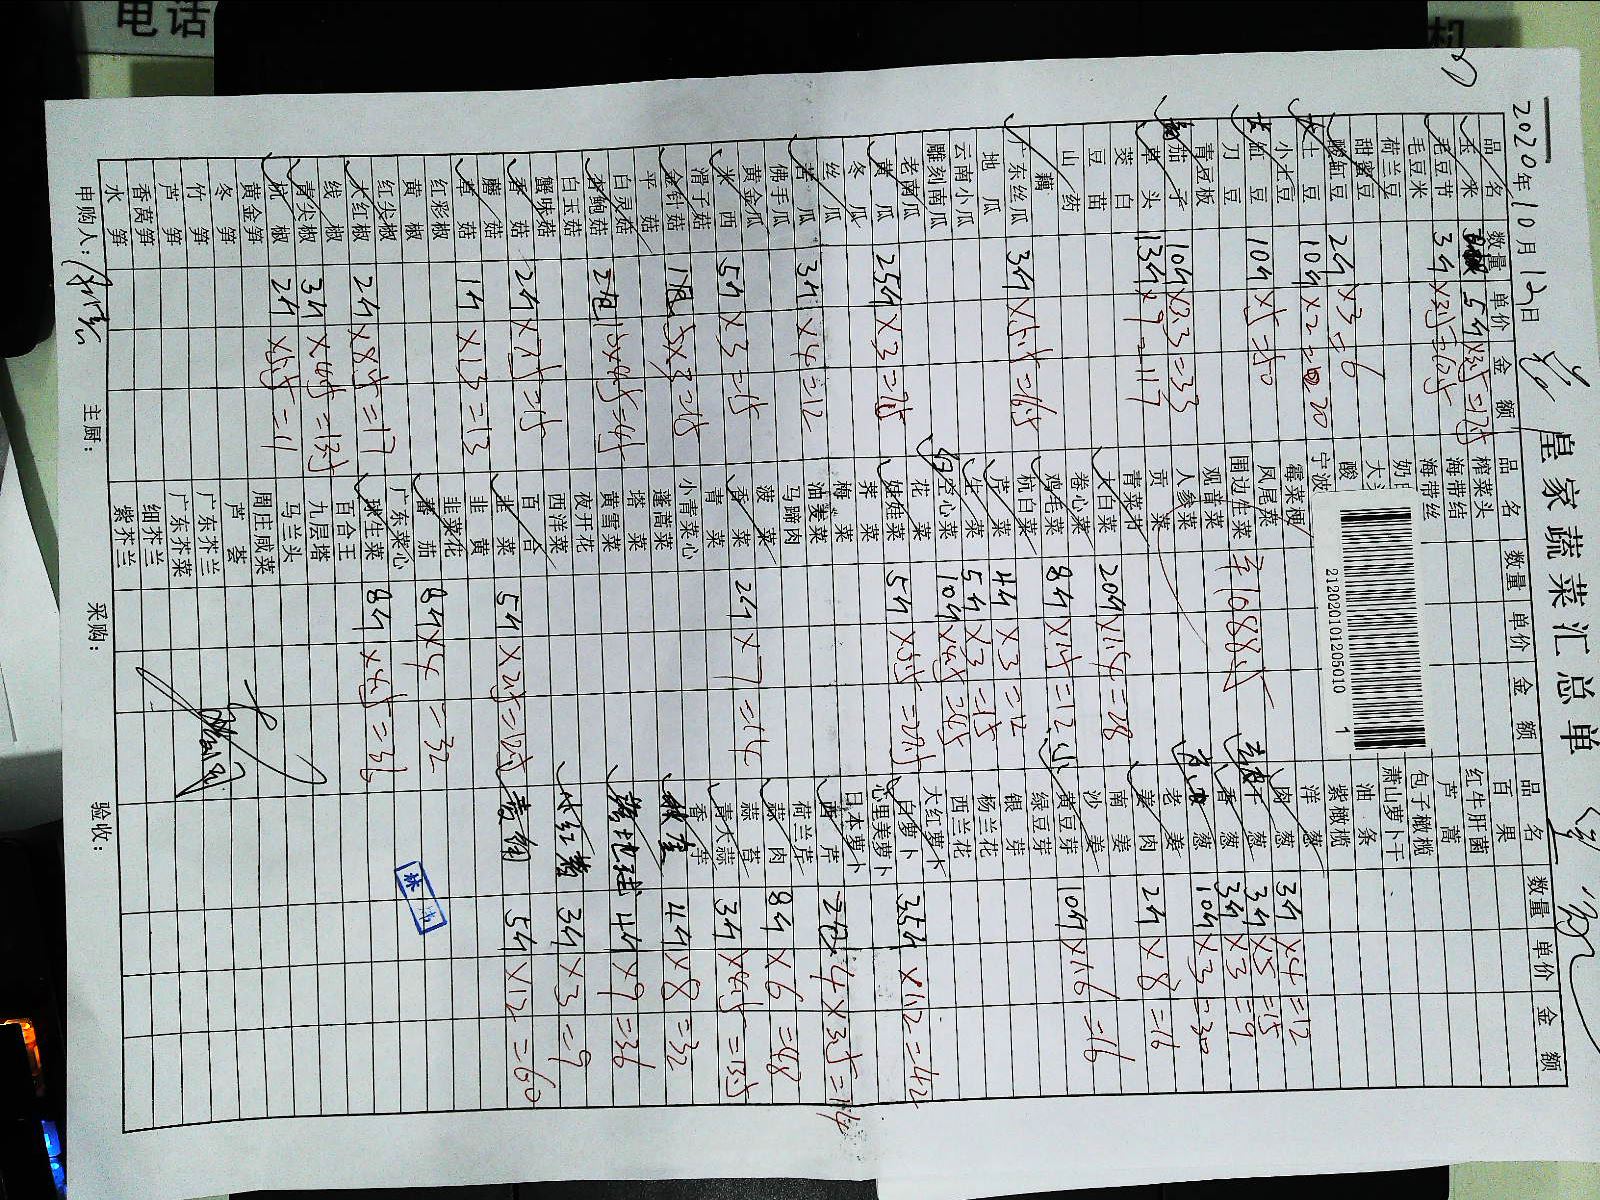 电话
机
皇家蔬菜汇总单
2020年10月12日
212020101205010 1
品名 数量 单价 金额
玉米 5斤×3.5=17.5
毛豆节 3斤×3.5=10.5
毛豆米
荷兰豆
甜蜜豆
酸缸豆 2斤×3=6
土豆 10斤×2=20
小才豆
缸豆 10斤×5=50
刀豆
青豆板
茄子 10斤×3.3=33
草头 13斤×9=117
茭白
豆苗
山药
藕
广东丝瓜 3斤×5.5=16.5
地瓜
云南小瓜
雕刻南瓜
老南瓜
黄瓜 25斤×3=75
冬瓜
丝瓜
苦瓜 3斤×4=12
佛手瓜
黄金瓜
米西 5斤×3=15
滑子菇
金针菇
平菇
白灵菇
杏鲍菇
白玉菇
蟹味菇
香菇 2斤×7.5=15
蘑菇
草菇 1斤×13=13
红彩椒
黄椒
红尖椒
大红椒 2斤×8.5=17
线椒
青尖椒 3斤×4.5=13.5
杭椒 2斤×5.5=11
黄金笋
冬笋
竹笋
芦笋
香莴笋
水笋
品名 数量 单价 金额
榨菜头
海带结
海带丝
酸
宁波
霉菜梗
凤尾菜
围边生菜 1088.5
观音菜
人参菜
贡菜
青菜节
大白菜 20斤×1.4=28
卷心菜
鸡毛菜 8斤×1.5=12
杭白菜
芹菜 4斤×3=12
生菜 5斤×3=15
空心菜 10斤×4.5=45
花菜
娃娃菜 5斤×5.5=27.5
荠菜
梅菜
油麦菜
马蹄肉
菠菜
香菜 2斤×7=14
青菜
小青菜心
蓬蒿菜
塔菜
黄雪菜
夜开花
西洋菜
百合
韭菜 5斤×2.5=12.5
韭黄
韭菜花
番茄 8斤×4=32
广东菜心
球生菜 8斤×4.5=36
百合王
九层塔
马兰头
周庄咸菜
芦荟
广东芥兰
广东芥菜
细芥兰
紫芥兰
品名 数量 单价 金额
百果
红牛肝菌
芦蒿
包子橄榄
萧山萝卜干
油条
紫橄榄
洋葱
肉葱 3斤×4=12
干葱 3斤×5=15
香葱 3斤×3=9
葱 10斤×3=30
老姜
姜肉 2斤×8=16
南姜
沙姜
黄豆芽 10斤×1.6=16
绿豆芽
银芽
杨兰花
西兰花
大红萝卜
白萝卜 35斤×1.2=42
心里美萝卜
日本萝卜
西芹 4×3.5=14
荷兰芹
蒜肉 8斤×6=48
蒜苔
青大蒜 3斤×4.5=13.5
香芋
4斤×8=32
4斤×9=36
小红薯 3斤×3=9
5斤×12=60
申购人：
主厨：
采购：
验收：